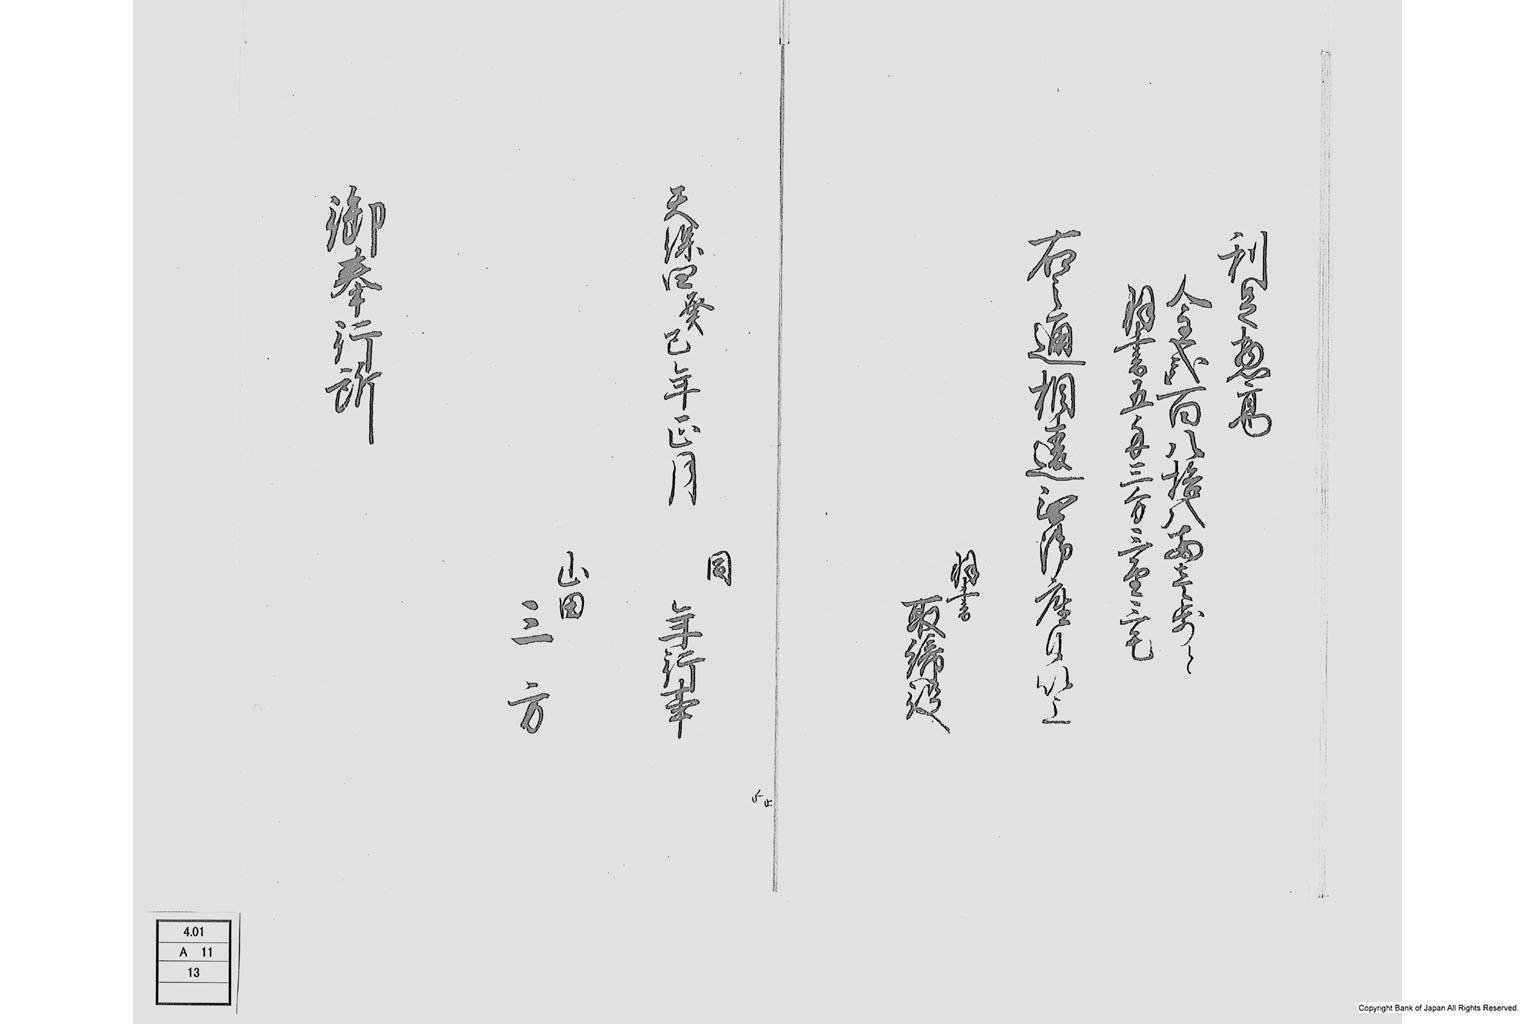 利足惣高
金弐百八拾八両壱歩ト
羽書五匁三分三厘三毛
右之通相違無御座候以上
羽書
取締役
同
年行事
天保四癸巳年正月
山田
三方
御奉行所
4.01
A 11
13
Copyright Bank of Japan All Rights Reserved.